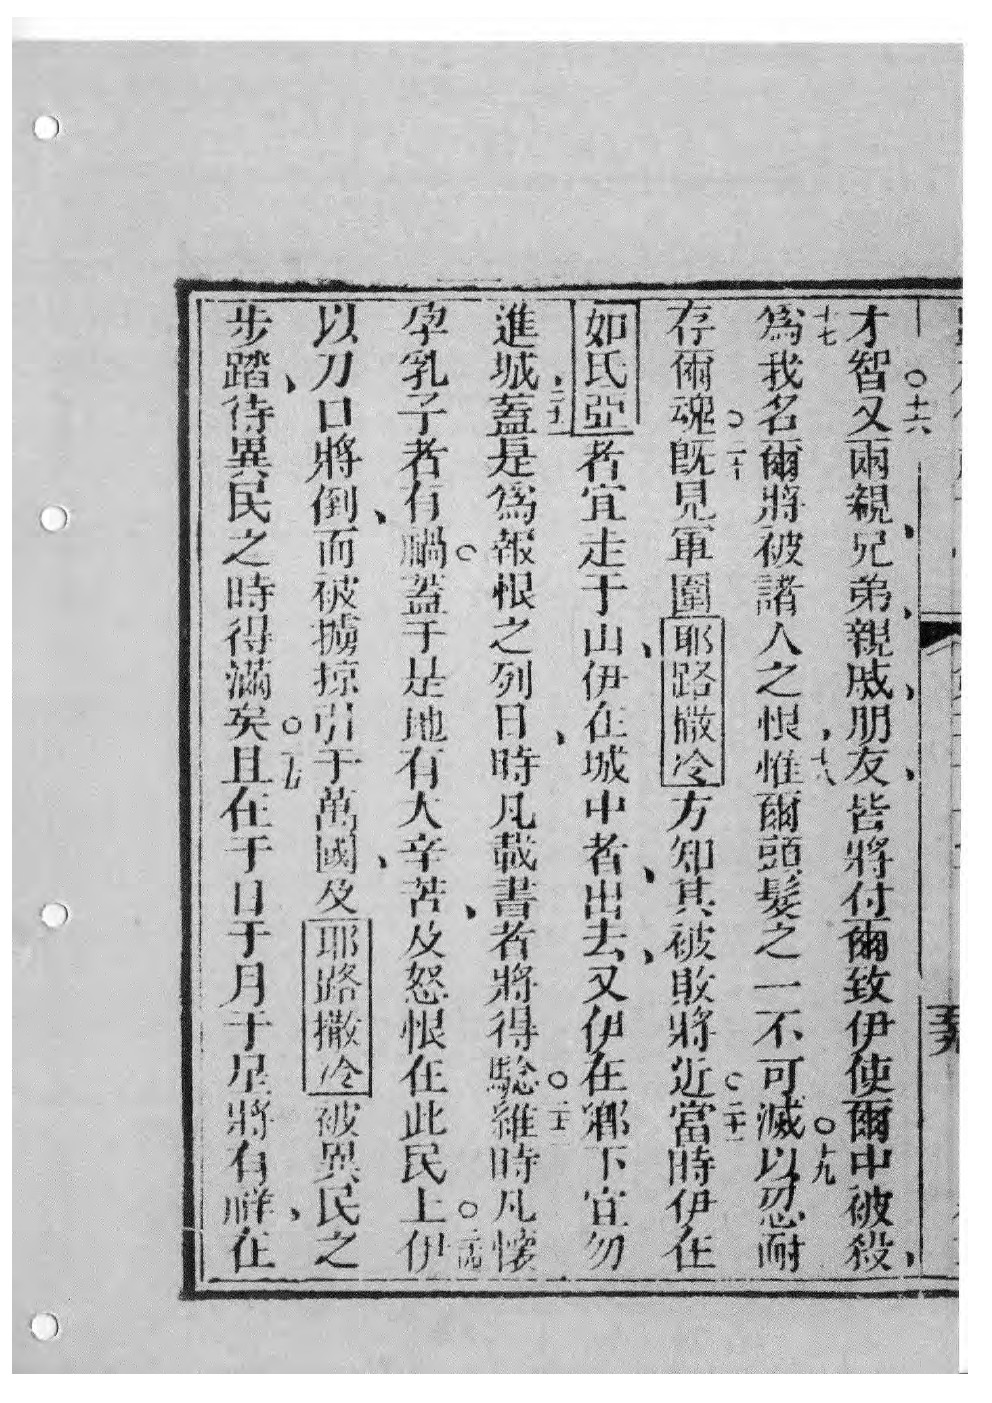 才智○十六又兩親、兄弟、親戚、朋友、皆將付爾致伊使爾中被殺、
十七爲我名爾將被諸人之恨、十八惟爾頭髮之一不可滅○十九以忍耐
存爾魂○二十既見軍圍耶路撒冷方知其被敗將近○二十一當時伊在
如氐亞者宜走于山、伊在城中者、出去、又伊在鄉下宜勿
進城、二十二蓋是爲報恨之列日、時凡載書者將得驗○二十三維時凡懷
孕乳子者有禍○蓋于是地有大辛苦、及怒恨在此民上○二十四伊
以刀口將倒、而被擄掠引于萬國、及耶路撒冷被異民之
步踏、待異民之時得滿矣○二十五且在于日于月于星將有祥、在